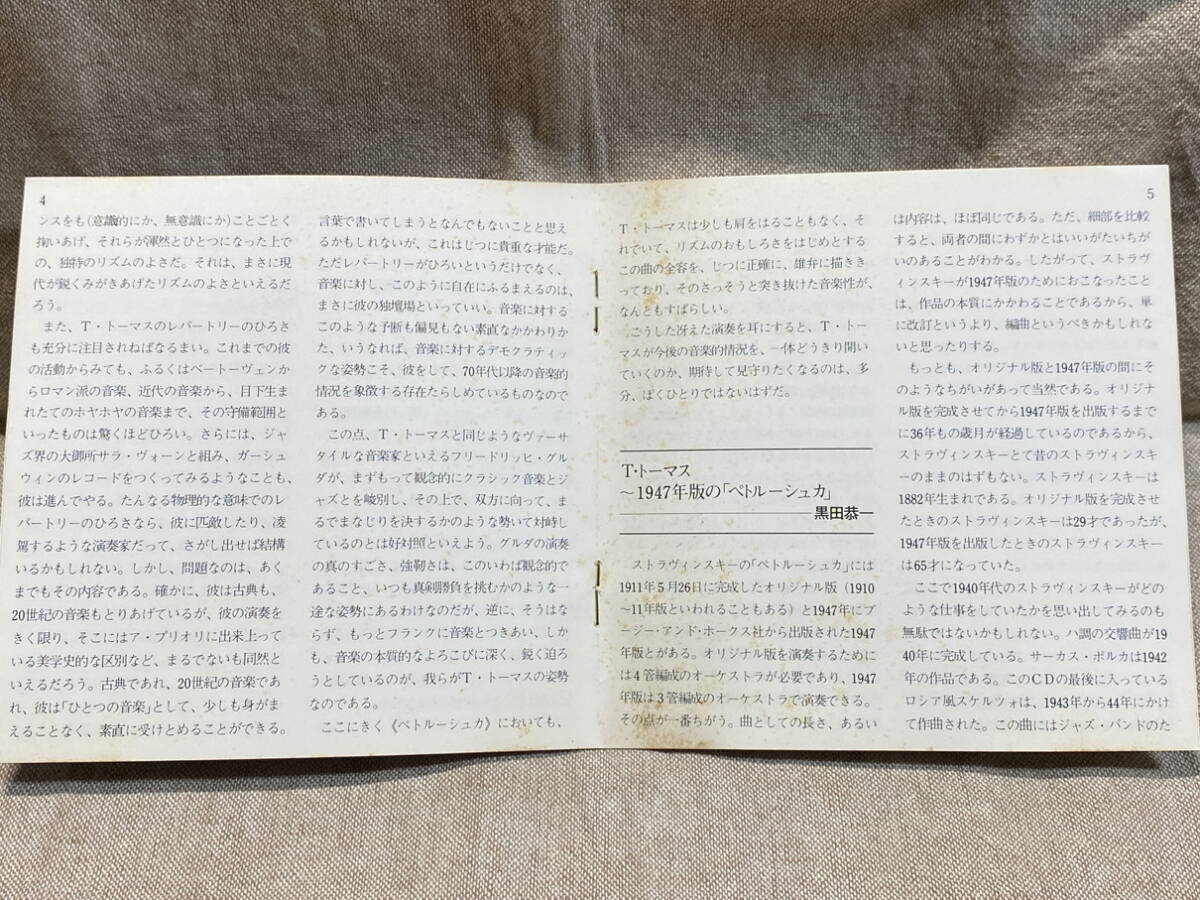 4
ンスをも(意識的にか、無意識にか)ことごとく
掬いあげ、それらが渾然とひとつになった上で
の、独特のリズムのよさだ。それは、まさに現
代が鋭くみがきあげたリズムのよさといえるだ
ろう。
また、T・トーマスのレパートリーのひろさ
も充分に注目されねばなるまい。これまでの彼
の活動からみても、ふるくはベートーヴェンか
らロマン派の音楽、近代の音楽から、目下生ま
れたてのホヤホヤの音楽まで、その守備範囲と
いったものは驚くほどひろい。さらには、ジャ
ズ界の大御所サラ・ヴォーンと組み、ガーシュ
ウィンのレコードをつくってみるようなことも、
彼は進んでやる。たんなる物理的な意味でのレ
パートリーのひろさなら、彼に匹敵したり、凌
駕するような演奏家だって、さがし出せば結構
いるかもしれない。しかし、問題なのは、あく
までもその内容である。確かに、彼は古典も、
20世紀の音楽もとりあげているが、彼の演奏を
きく限り、そこにはア・プリオリに出来上って
いる美学史的な区別など、まるでないも同然と
いえるだろう。古典であれ、20世紀の音楽であ
れ、彼は「ひとつの音楽」として、少しも身がま
えることなく、素直に受けとめることができる。
言葉で書いてしまうとなんでもないことと思え
るかもしれないが、これはじつに貴重な才能だ。
ただレパートリーがひろいというだけでなく、
音楽に対し、このように自在にふるまえるのは、
まさに彼の独壇場といっていい。音楽に対する
このような予断も偏見もない素直なかかわりか
た、いうなれば、音楽に対するデモクラティッ
クな姿勢こそ、彼をして、70年代以降の音楽的
情況を象徴する存在たらしめているものなので
ある。
この点、T・トーマスと同じようなヴァーサ
タイルな音楽家といえるフリードリッヒ・グル
ダが、まずもって観念的にクラシック音楽とジ
ャズとを峻別し、その上で、双方に向って、ま
るでまなじりを決するかのような勢いで対峙し
ているのとは好対照といえよう。グルダの演奏
の真のすごさ、強靭さは、このいわば観念的で
あること、いつも真剣勝負を挑むかのような一
途な姿勢にあるわけなのだが、逆に、そうはな
らず、もっとフランクに音楽とつきあい、しか
も、音楽の本質的なよろこびに深く、鋭く迫ろ
うとしているのが、我らがT・トーマスの姿勢
なのである。
ここにきく《ペトルーシュカ》においても、
5
T・トーマスは少しも肩をはることもなく、そ
れでいて、リズムのおもしろさをはじめとする
この曲の全容を、じつに正確に、雄弁に描きき
っており、そのさっそうと突き抜けた音楽性が、
なんともすばらしい。
こうした冴えた演奏を耳にすると、T・トー
マスが今後の音楽的情況を、一体どうきり開い
ていくのか、期待して見守りたくなるのは、多
分、ぼくひとりではないはずだ。
T・トーマス
〜1947年版の「ペトルーシュカ」
黒田恭一
ストラヴィンスキーの「ペトルーシュカ」には
1911年5月26日に完成したオリジナル版(1910
〜11年版といわれることもある)と1947年にブ
ージー・アンド・ホークス社から出版された1947
年版とがある。オリジナル版を演奏するために
は4管編成のオーケストラが必要であり、1947
年版は3管編成のオーケストラで演奏できる。
その点が一番ちがう。曲としての長さ、あるい
は内容は、ほぼ同じである。ただ、細部を比較
すると、両者の間にわずかとはいいがたいちが
いのあることがわかる。したがって、ストラヴ
ィンスキーが1947年版のためにおこなったこと
は、作品の本質にかかわることであるから、単
に改訂というより、編曲というべきかもしれな
いと思ったりする。
もっとも、オリジナル版と1947年版の間にそ
のようなちがいがあって当然である。オリジナ
ル版を完成させてから1947年版を出版するまで
に36年もの歳月が経過しているのであるから、
ストラヴィンスキーとて昔のストラヴィンスキ
ーのままのはずもない。ストラヴィンスキーは
1882年生まれである。オリジナル版を完成させ
たときのストラヴィンスキーは29才であったが、
1947年版を出版したときのストラヴィンスキー
は65才になっていた。
ここで1940年代のストラヴィンスキーがど
のような仕事をしていたかを思い出してみるのも
無駄ではないかもしれない。ハ調の交響曲が19
40年に完成している。サーカス・ポルカは1942
年の作品である。このCDの最後に入っている
ロシア風スケルツォは、1943年から44年にかけ
て作曲された。この曲にはジャズ・バンドのた